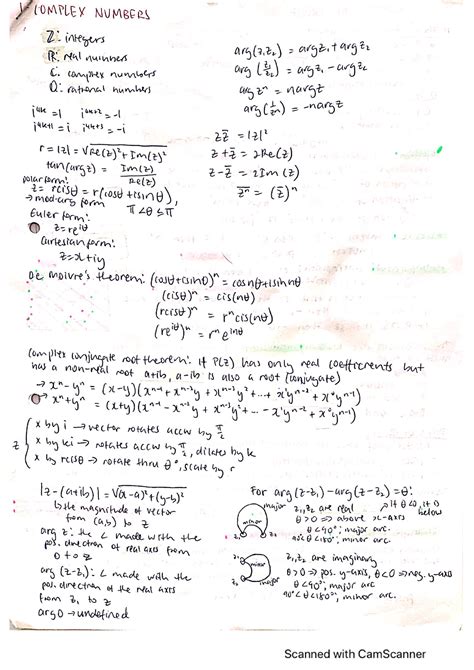 COMPLEX NUMBERS
Z: integers
R: real numbers
C: complex numbers
Q: rational numbers
i^4k = 1 i^4k+2 = -1
i^4k+1 = i i^4k+3 = -i
r = |z| = √Re(z)²+Im(z)²
tan(arg z) = Im(z)/Re(z)
polar form:
z = rcisθ = r(cosθ+isinθ),
→ mod-arg form
Euler form:
z = re^iθ
Cartesian form:
z = x+iy
arg(z₁z₂) = argz₁ + argz₂
arg(z₁/z₂) = argz₁ - argz₂
arg zⁿ = nargz
arg(1/zⁿ) = -nargz
zz̄ = |z|²
z + z̄ = 2Re(z)
z - z̄ = 2Im(z)
z̄ⁿ = (z̄)ⁿ
De Moivre's theorem: (cosθ+isinθ)ⁿ = cosnθ+isinnθ
(cisθ)ⁿ = cis(nθ)
(rcisθ)ⁿ = rⁿcis(nθ)
(re^iθ)ⁿ = rⁿe^inθ
Complex conjugate root theorem: if P(z) has only real coefficients but
has a non-real root a+ib, a-ib is also a root (conjugate)
→ xⁿ-yⁿ = (x-y)(xⁿ⁻¹+xⁿ⁻²y+xⁿ⁻³y²+...+x¹yⁿ⁻²+x⁰yⁿ⁻¹)
→ xⁿ+yⁿ = (x+y)(xⁿ⁻¹-xⁿ⁻²y+xⁿ⁻³y²+...-x¹yⁿ⁻²+x⁰yⁿ⁻¹)
x by i → vector rotates accw by π/2
z x by ki → rotates accw by π/2, dilates by k
x by rcisθ → rotate thru θ°, scale by r
|z-(a+ib)| = √(x-a)²+(y-b)²
↳ the magnitude of vector
from (a,b) to z
arg z: the ∠ made with the
pos. direction of real axis from
0 to z
arg (z-z₁): ∠ made with the
pos. direction of the real axis
from z₁ to z
arg 0 → undefined
For arg(z-z₁)-arg(z-z₂)=θ:
major
minor
z₁,z₂ are real
if θ<0, it is
below
θ>0 → above x-axis
θ<90°, major arc
minor arc
z₁,z₂ are imaginary
major
minor
θ>0 → pos. y-axis, θ<0 → neg. y-axis
θ<90°, major arc.
90°<θ<180°, minor arc.
Scanned with CamScanner